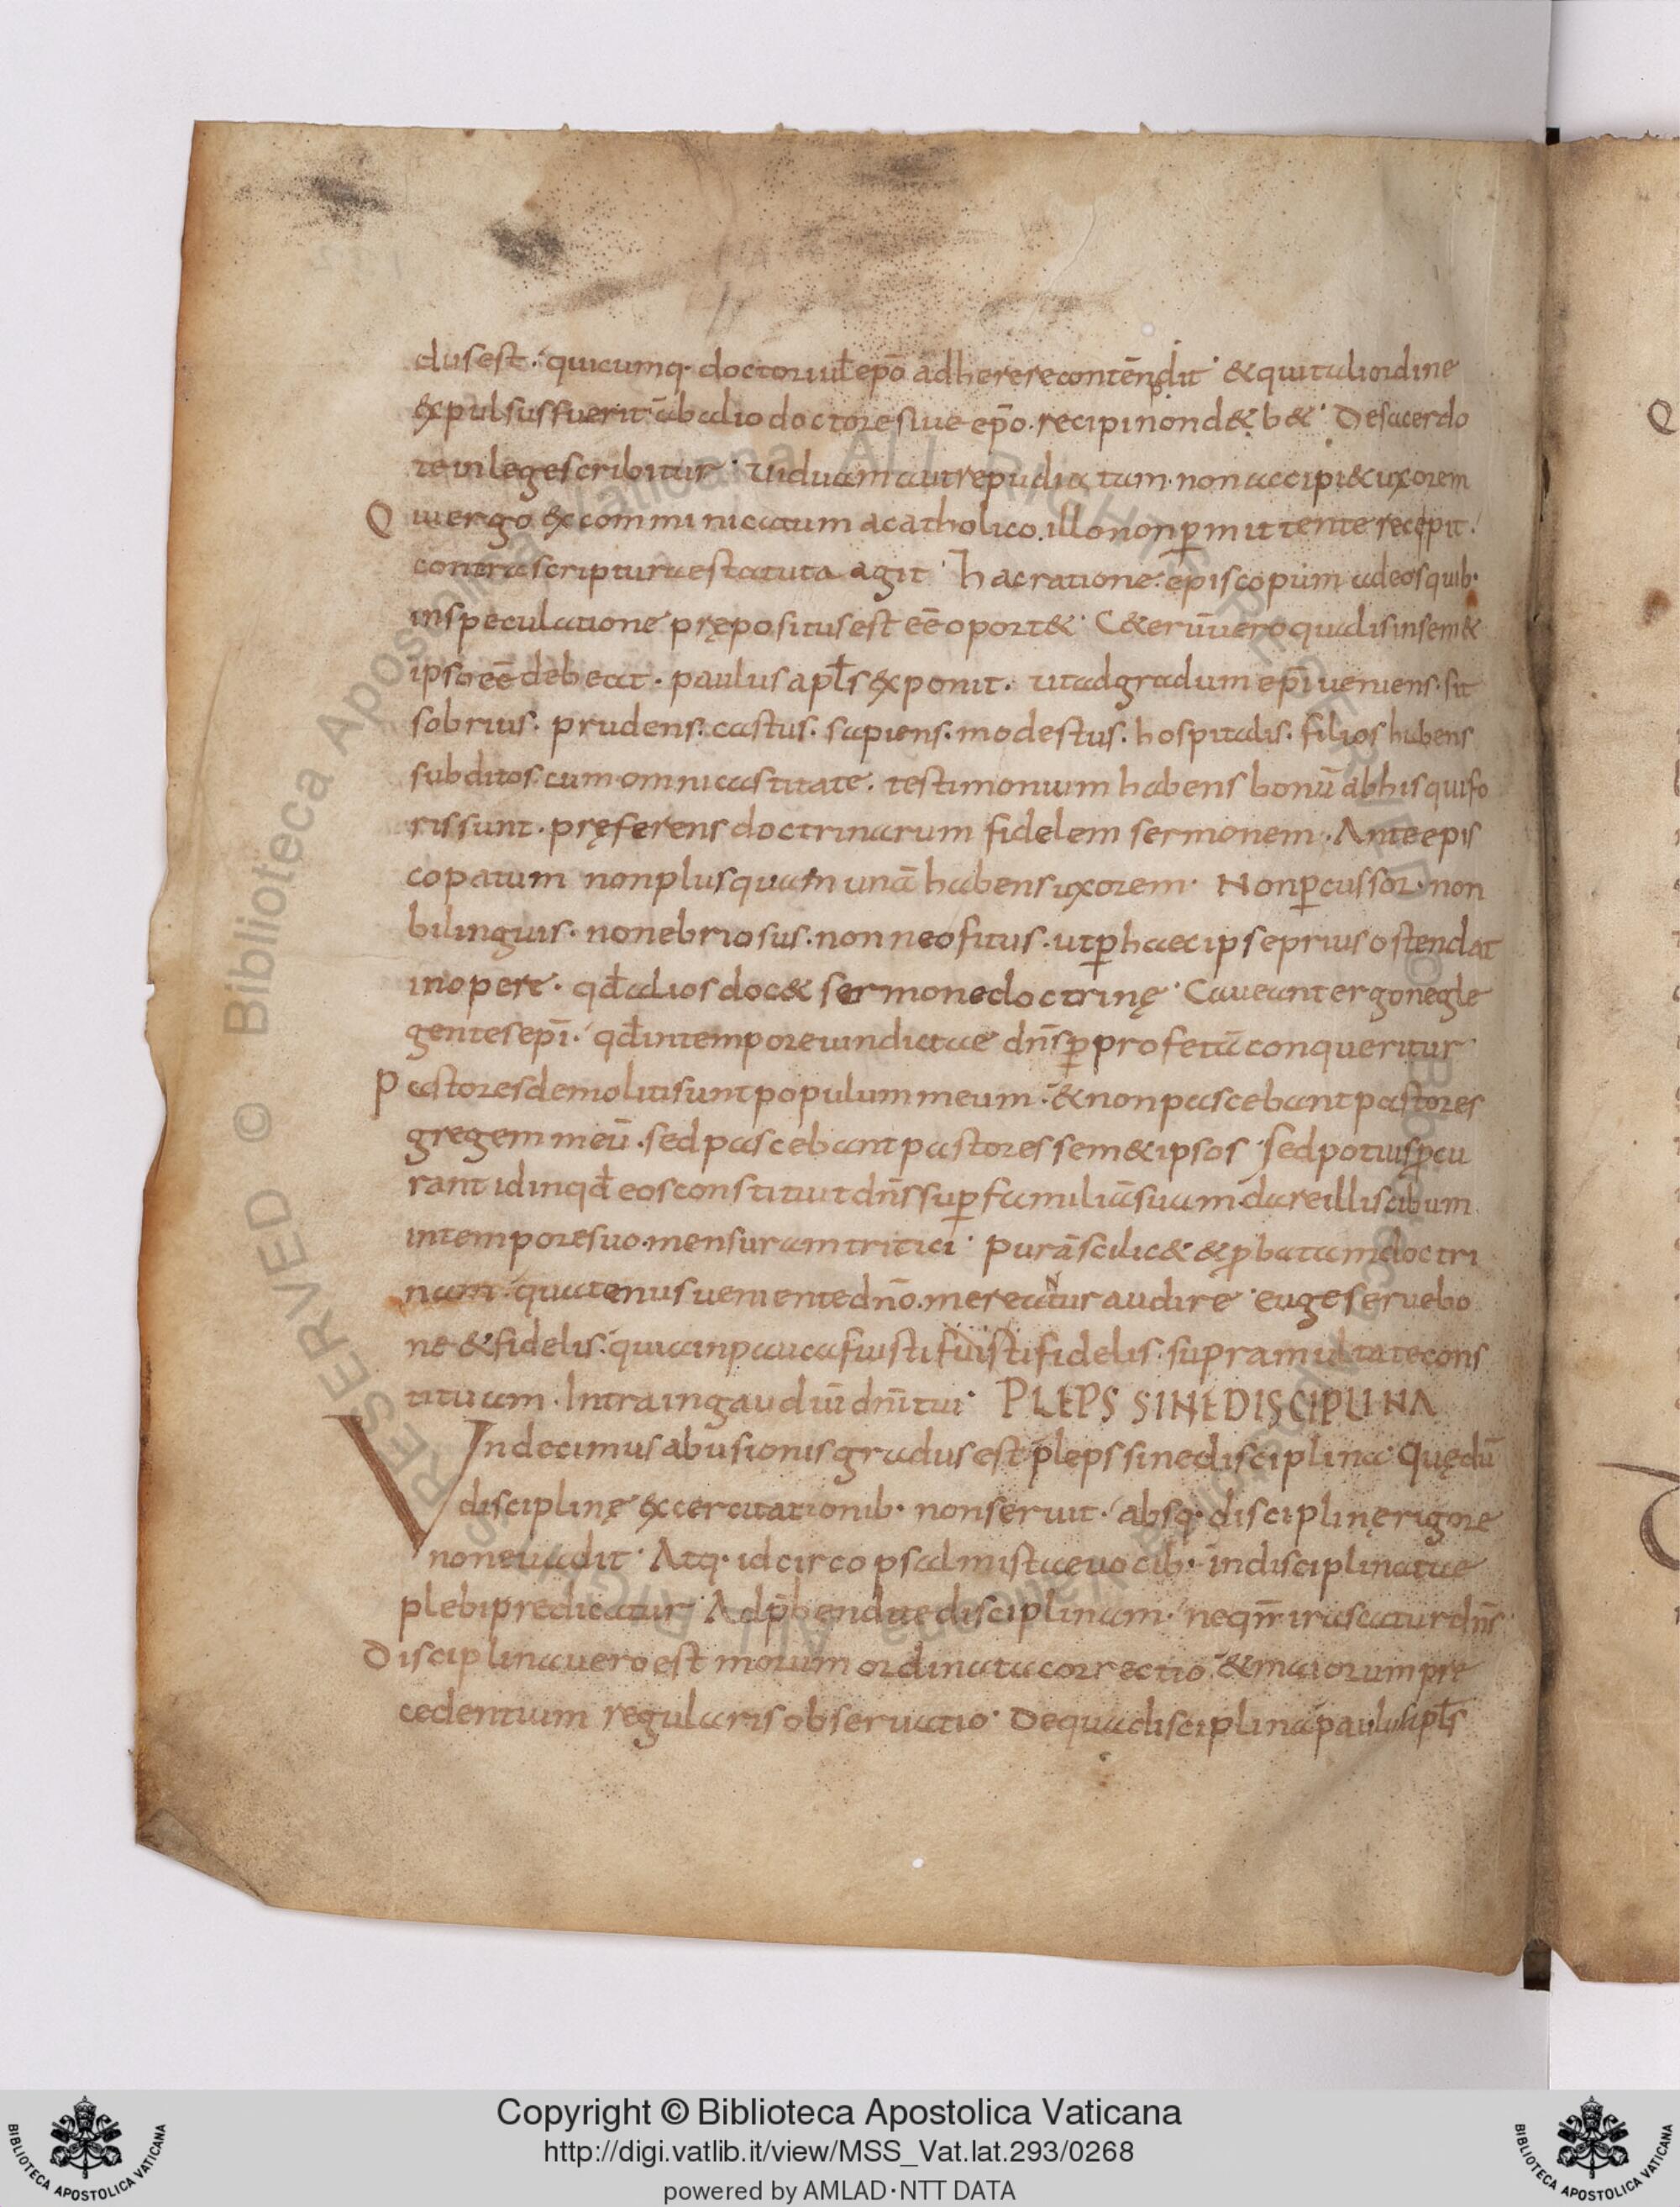 dus est. quicumq. doctori uel̄ epō adherere contēndit. & qui tali ordine
expulsus fuerit. ab alio doctore siue epō. recipi non deb&. De sacerdo
te in lege scribitur. Viduam aut repudiatam. non accipi& uxorem
Qui ergo excomminicatum a catholico. illo non ꝑmittente recepit.
contra scripturae statuta agit. Hac ratione. episcopum ad eos quib.
in speculatione prępositus est eē oport&. C&erū uero qualis in sem&
ipso eē debeat. paulus apl̄s exponit. ut ad gradum epī ueniens. sit
sobrius. prudens. castus. sapiens. modestus. hospitalis. filios habens
subditos. cum omni castitate. testimonium habens bonū ab his qui fo
ris sunt. pręferens doctrinarum fidelem sermonem. Ante epis
copatum non plus quam unā habens uxorem. Non ꝑcussor. non
bilinguis. non ebriosus. non neofitus. ut ꝑ haec ipse prius ostendat
in opere. qđ alios doc& sermone doctrinę. Caueant ergo negle
gentes epī. qđ in tempore uindictae dn̄s ꝑ profetā conqueritur
Pastores demoliti sunt populum meum. & non pascebant pastores
gregem meū. sed pascebant pastores sem&ipsos. Sed potius ꝓcu
rant id in qđ eos constituit dn̄s suꝑ familiā suam. dare illis cibum
in tempore suo. mensuram tritici. Purā scilic& & ꝓbatam doctri
nam. quatenus ueniente dn̄o. mereaNtur audire. euge serue bo
ne & fidelis. quia in pauca fuisti fuisti fidelis. supra multa te cons
tituam. Intra in gaudiū dn̄i tui. PLEPS SINE DISCIPLINA
Vndecimus abusionis gradus est pleps sine disciplina. Quę dū
disciplinę excercitationib. non seruit. absq. disciplinę rigore
non euadit. Atq. idcirco psalmistae uocib. indisciplinatae
plebi predicatur. Adp̄hendite disciplinam. neqn̄ irascatur dn̄s.
Disciplina uero est morum ordinata correctio. & maiorum pre
cedentium regularis obseruatio. De qua disciplina paulus apl̄s
Copyright © Biblioteca Apostolica Vaticana
http://digi.vatlib.it/view/MSS_Vat.lat.293/0268
powered by AMLAD·NTT DATA